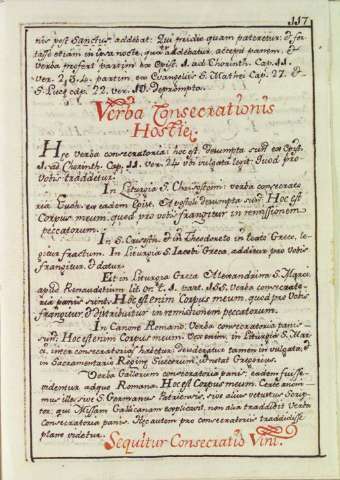 117
nis post Sanctus addebat: Qui pridie quam pateretur: et for
tasse etiam in ipsa nocte, qua addebatur, accepit panem, et
verba prosert partim ex Epist. I. ad Chorinth. Cap. 11.
ver. 2. 3. 4. partim ex Evangeliis S. Mathei Cap. 27. &
S. Lucę cap. 22. ver. 19. deprompta.
Verba Consecrationis
Hostię.
Hęc verba consecratoria: hoc est, deumpta sunt ex Epist.
I. ad Chorinth. Cap. 11. ver. 24 ubi vulgata legit: Quod pro
vobis tradetur.
In Liturgia S. Chrisostomi: verba consecrato
ria Euch. ex eadem Epist. Et est desumpta sunt: Hoc est
Corpus meum, quod pro vobis frangitur in remissionem
peccatorum.
In S. Crisosth. et in Theodoreto in textu Greco, le-
gitur fractum. In Liturgia S. Iacobi Greca, additur pro vobis
frangitur, et datur.
Et in Liturgia Greca Alexandrina S. Marci,
apud Renaudotium lit. or. t. 1. part. 156. verba consecrato-
ria panis sunt: Hoc est enim Corpus meum, quod pro vobis
frangitur, et distribuitur in remissionem peccatorum.
In Canone Romano: Verba consecratoria panis
sunt: Hoc est enim Corpus meum: Ver enim, in Liturgia S. Mar-
ci, inter consecratorias habetur; sed in vulgata, et
in Sacramentario Reginę Suecorum, omitat Gregorius.
Verba Gallorum consecratoria panis: eadem fuisse
adque Romana: Hoc est Corpus meum. Certe anoni-
mus ille sive S. Germanus Parisiensis, sive alius vetustus Scrip-
tor, qui Missam Gallicanam explicavit, non alia traddibit verba
consecratoria panis. Nec autem pro consecratoriis traddidisse
plane videtur.
Sequitur Consecratio Vini.